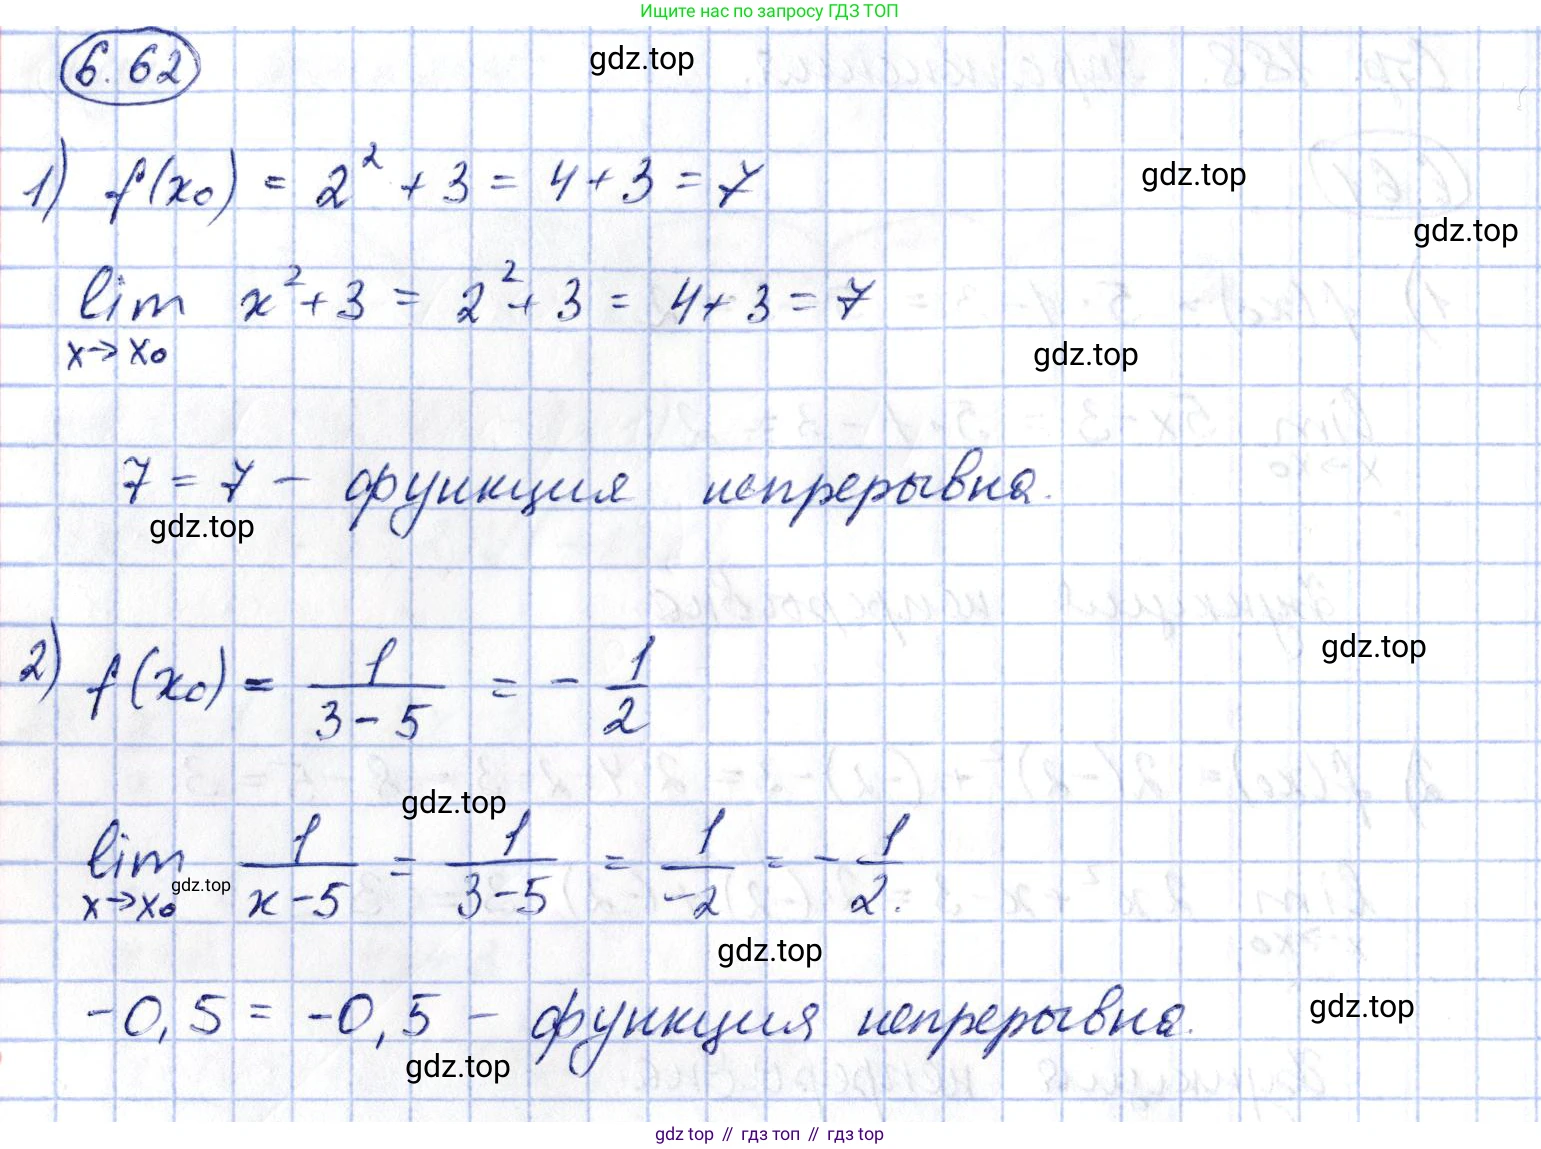 Ищите нас по запросу ГДЗ ТОП
6.62
gdz.top
1) f(x₀) = 2² + 3 = 4 + 3 = 7
gdz.top
gdz.top
lim x² + 3 = 2² + 3 = 4 + 3 = 7
x→x₀
gdz.top
7 = 7 – функция непрерывна.
gdz.top
gdz.top
2) f(x₀) = 1/(3 – 5) = – 1/2
gdz.top
lim 1/(x – 5) = 1/(3 – 5) = 1/–2 = – 1/2.
x→x₀
gdz.top
gdz.top
–0,5 = –0,5 – функция непрерывна.
gdz.top
gdz.top
gdz top // гдз топ // gdz top